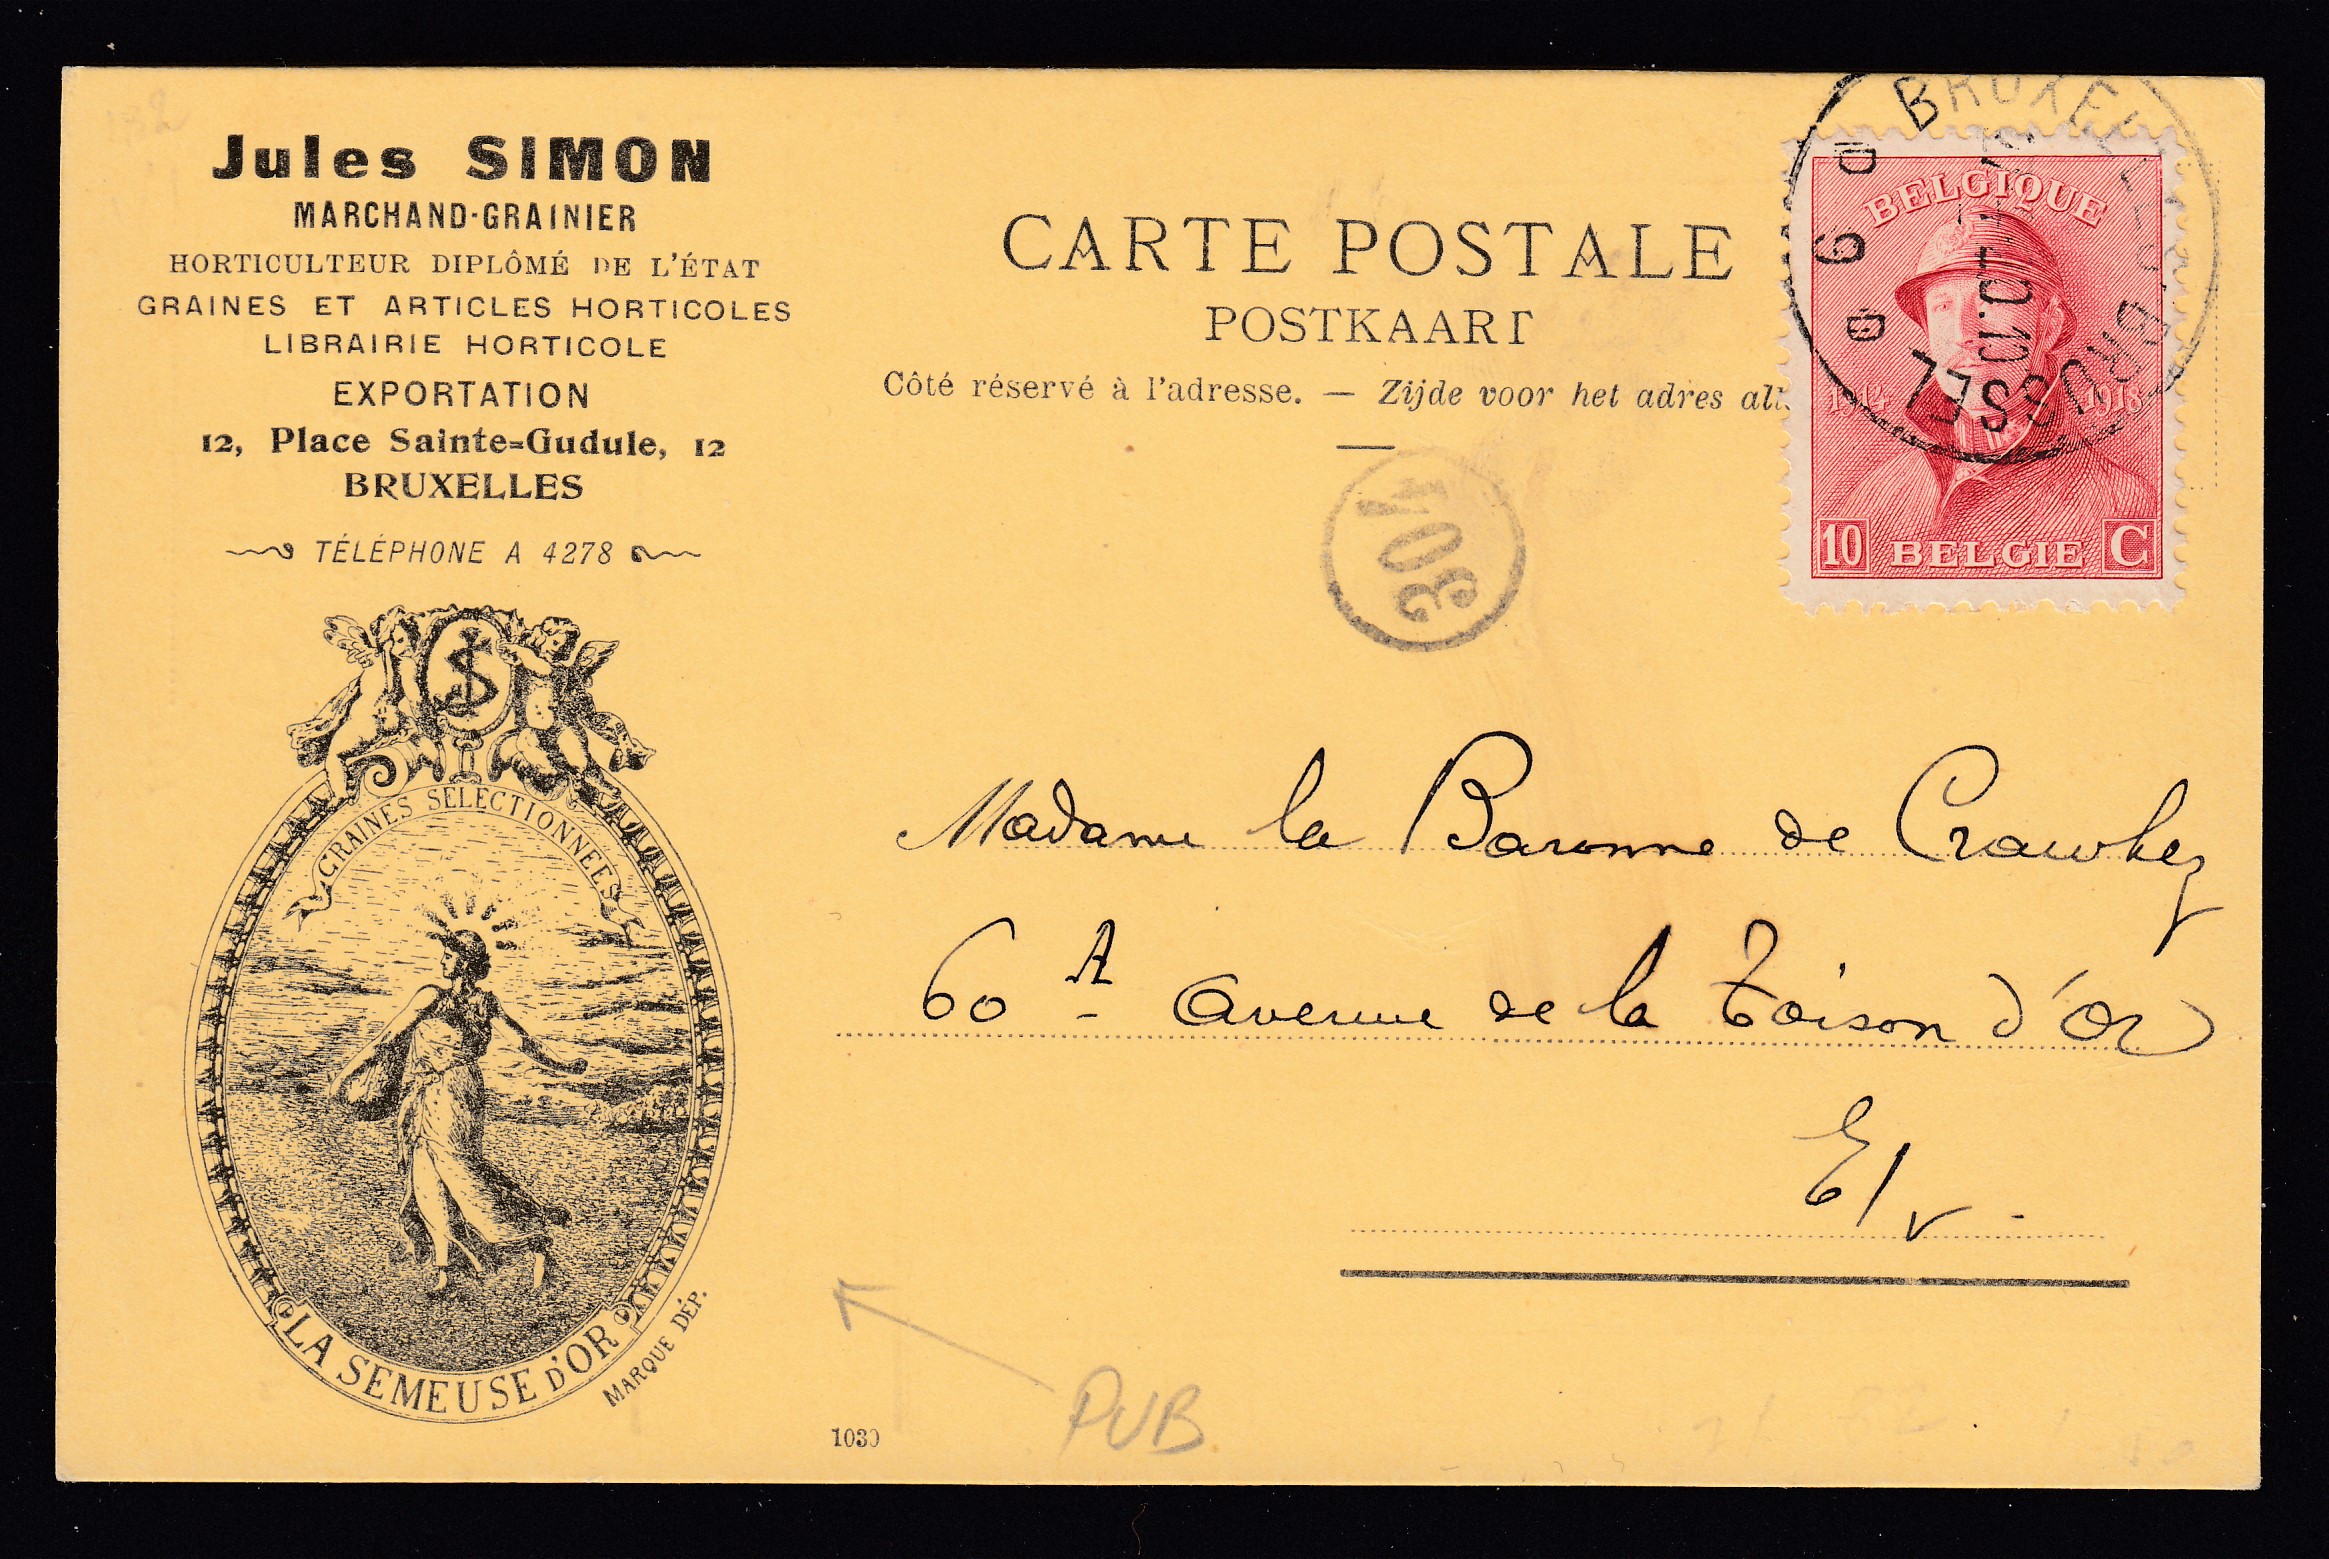 Jules SIMON
MARCHAND-GRAINIER
HORTICULTEUR DIPLÔMÉ DE L'ÉTAT
GRAINES ET ARTICLES HORTICOLES
LIBRAIRIE HORTICOLE
EXPORTATION
12, Place Sainte=Gudule, 12
BRUXELLES
TÉLÉPHONE A 4278
GRAINES SELECTIONNEES
LA SEMEUSE D'OR
MARQUE DÉP.
CARTE POSTALE
POSTKAART
Côté réservé à l'adresse. — Zijde voor het adres all
BRUXELLES
BRUSSEL
BELGIQUE
1914 1918
10 BELGIE C
304
Madame la Baronne de Crawhez
60 A avenue de la Toison d'Or
E/v.
1030
PUB